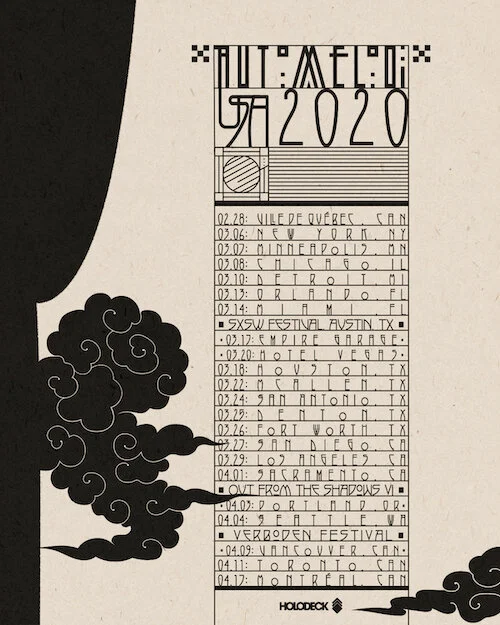 AUTOMELODi
USA 2020
02.28: VILLE DE QUÉBEC, CAN
03.06: NEW YORK, NY
03.07: MINNEAPOLIS, MN
03.08: CHICAGO, IL
03.10: DETROIT, MI
03.13: ORLANDO, FL
03.14: MIAMI, FL
SXSW FESTIVAL AUSTIN, TX
03.17: EMPIRE GARAGE
03.20: HOTEL VEGAS
03.18: HOUSTON, TX
03.22: MCALLEN, TX
03.24: SAN ANTONIO, TX
03.25: DENTON, TX
03.26: FORT WORTH, TX
03.27: SAN DIEGO, CA
03.29: LOS ANGELES, CA
04.01: SACRAMENTO, CA
OUT FROM THE SHADOWS VI
04.03: PORTLAND, OR
04.04: SEATTLE, WA
VERBODEN FESTIVAL
04.09: VANCOUVER, CAN
04.11: TORONTO, CAN
04.17: MONTRÉAL, CAN
HOLODECK